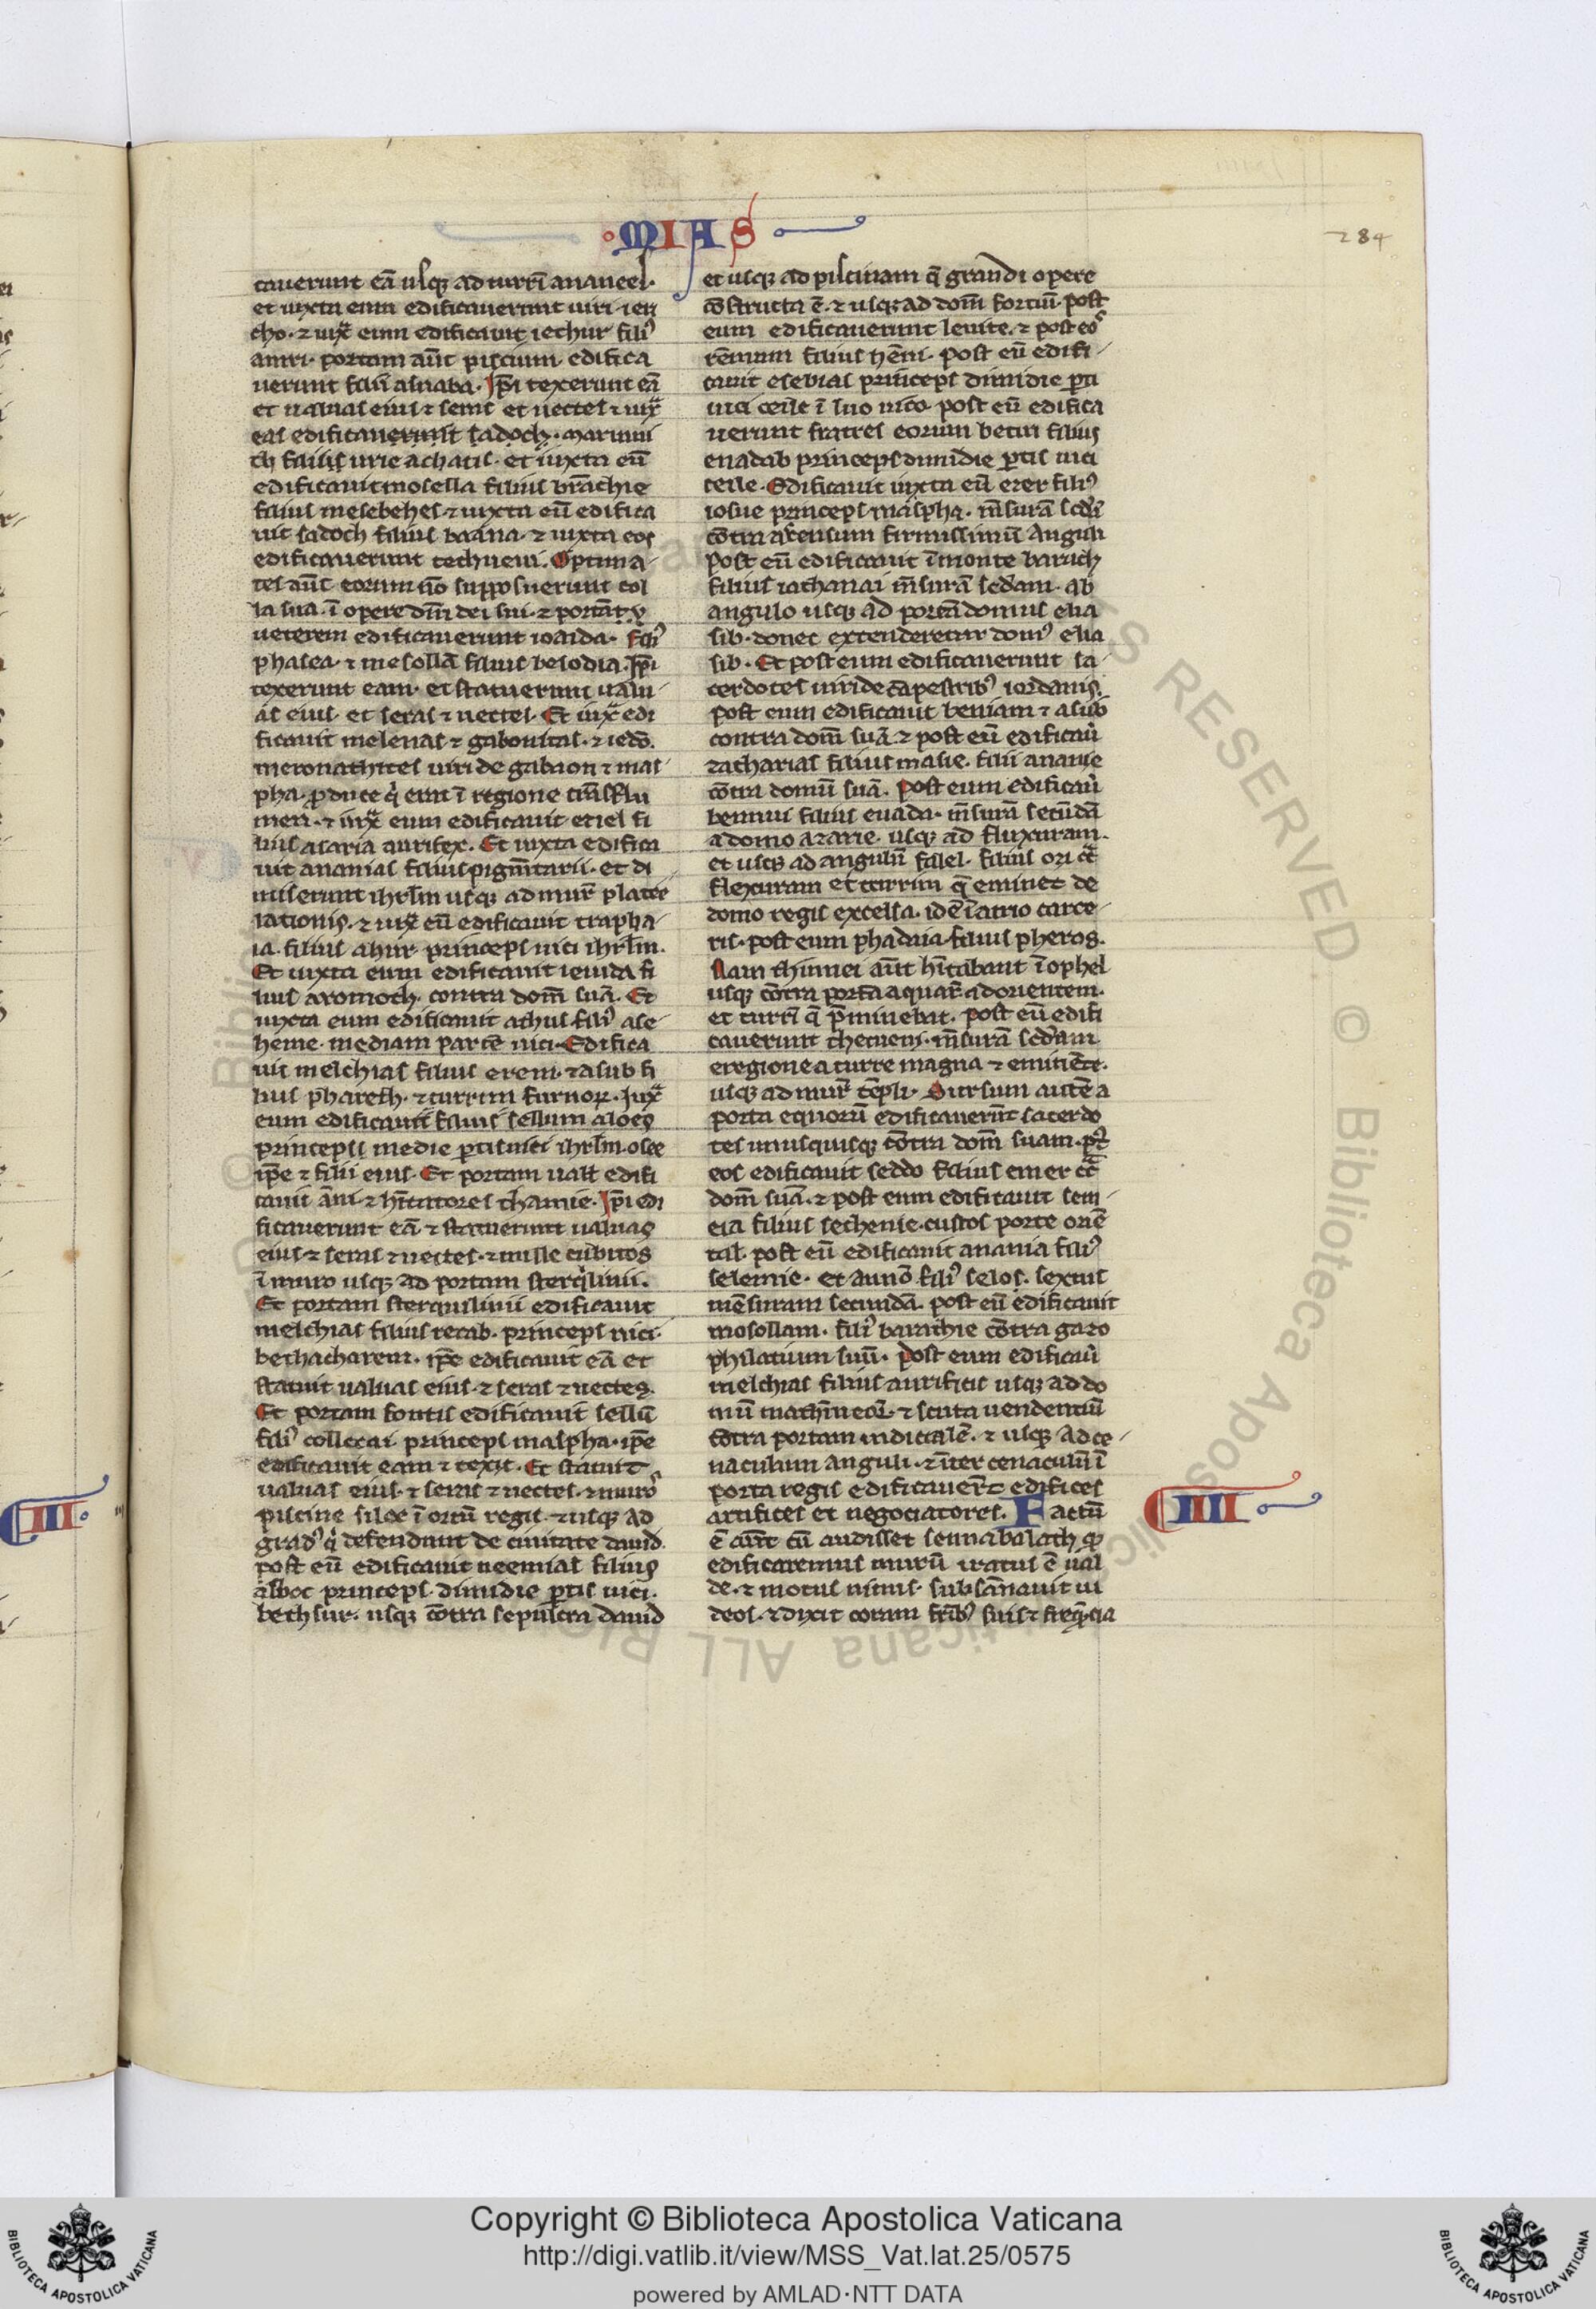 MIAS
284
tauerunt eā usq; ad turrī ananeel.
et iuxta eum edificauerunt uiri ieri
cho. ⁊ iux̄ eum edificauit iechur fili⁹
amri. portam aūt piscium edifica
uerunt filii asnaba. Ip̄i texerunt eā
et ualuas eius ⁊ seras et uectes ⁊ iux̄
eas edificauerunt sadoch. marimu
th filius urie achatis. et iuxta eū
edificauit mosella filius brāchie
filius mesebehel ⁊ iuxta eū edifica
uit sadoch filius baana. ⁊ iuxta eos
edificauerunt techueni. Optima
tes aūt eorum nō supposuerunt col
la sua. ī opere dn̄i dei sui. ⁊ portāt
ueterem edificauerunt ioaida. fili⁹
phasea. ⁊ mesollā filius besodia. Ip̄i
texerunt eam. et statuerunt ualu
as eius et seras ⁊ uectes. Et iux̄ edi
ficauit meletias ⁊ gabonitas. ⁊ iedō.
meronathites uiri de gabaon ⁊ mas
pha. ꝓ duce q̇ erat ī regione trāsflu
men. ⁊ iux̄ eum edificauit eziel fi
lius asaria aurifex. Et iuxta edifica
uit ananias filius pigm̄tarii. et di
miserunt ihrl̄m usq; ad mur̄ platee
latioris. ⁊ iux̄ eū edificauit trapha
ia. filius ahur princeps uici ihrl̄m.
Et iuxta eum edificauit ieuida fi
lius aromoth. contra dom̄ suā. Et
iuxta eum edificauit athus fili⁹ ase
benie. mediam partē uici. Edifica
uit melchias filius erem. ⁊ asub fi
lius phareth. ⁊ turrim furnoꝝ. Iux̄
eum edificauit filius sellum aloes
princeps medie ꝑtis uici ihrl̄m
ip̄e ⁊ filii eius. Et portam uall̄ edifi
cauit āni ⁊ hītatores thanie. Ip̄i edi
ficauerunt eā ⁊ statuerunt ualuas
eius ⁊ seras ⁊ uectes. ⁊ mille cubitos
ī muro usq; ad portam sterq̇linii.
Et portam sterquilinii edificauit
melchias filius recab. princeps uici
bethacharem. ip̄e edificauit eā et
statuit ualuas eius ⁊ seras ⁊ uectes.
Et portam fontis edificauit sellū
fili⁹ collozai. princeps maspha. ip̄e
edificauit eam ⁊ texit. Et statuit
ualuas eius ⁊ seras ⁊ uectes. ⁊ muros
piscine siloe ī ortū regis. ⁊ usq; ad
grad⁹ q̇ defendunt de ciuitate dauid.
post eū edificauit neemias filius
asboc princeps dimidie ꝑtis uici.
bethsur. usq; cōtra sepulcra dauid
et usq; ad piscinam q̄ grandi opere
cōstructa ē. ⁊ usq; ad dom̄ fortiū. post
eum edificauerunt leuite. ⁊ post eos
remum filius benni. post eū edifi
cauit esebias princeps dimidie ꝑti
uici ceile ī suo uico. post eū edifica
uerunt fratres eorum betui filius
enadab princeps dimidie ꝑtis uici
ceile. Edificauit iuxta eū ezer fili⁹
iosue princeps maspha. m̄surā scd̄ā
cōtra ascensum firmissimū anguli
Post eū edificauit ī monte baruch
filius zachanai m̄surā sedam. ab
angulo usq; ad portā domus elia
sib. donec extenderetur dom⁹ elia
sib. Et post eum edificauerunt sa
cerdotes uiri de cāpestrib⁹ iordanis.
Post eum edificauit beniam ⁊ asub
contra dom̄ suā ⁊ post eū edificau̇
zacharias filius masie. filii ananie
cōtra domū suā. Post eum edificau̇
bennui filius enada. m̄surā secūdā
a domo azarie. usq; ad fluxuram.
et usq; ad angulū falel. filius ozi cc̄
flexuram et turrim q̄ eminet de
domo regis excelsa. id ē ī atrio carce
ris. post eum phadaia filius pheros.
Nam thinnei aūt hītabant ī ophel
usq; cōtra portā aquar̄ ad orientem.
et turrī q̄ p̄minebat. post eū edifi
cauerunt thecueni. m̄surā scd̄am
e regione a turre magna ⁊ eminēte.
usq; ad mur̄ tēpli. Sursum autē a
porta equorū edificauerūt sacerdo
tes unusquisq; cōtra dom̄ suam. p̄t
eos edificauit seddo filius emer cc̄
dom̄ suā. ⁊ post eum edificauit sem
eia filius sechenie. custos porte oriē
tal. post eū edificauit anania fili⁹
selemie. et annō fili⁹ selos. sextus
mēsuram secundā. post eū edificauit
mosollam. fili⁹ barachie cōtra gazo
philatium suū. Post eum edificau̇
melchias filius aurificis usq; ad do
mū nathīneoꝝ. ⁊ scuta uendentiū
cōtra portam iudicialē. ⁊ usq; ad ce
naculum anguli. ⁊ īter cenaculū ī
porta regis edificauer̄t edifices
artifices et negociatores. Factū
ē aūt cū audisset sennabalath qͦ
edificaremus murū iratus ē ual
de. ⁊ motus nimis subsānauit iu
deos. ⁊ dixit coram frīb⁹ suis ⁊ freq̄ncia
III
IIII
Copyright © Biblioteca Apostolica Vaticana
http://digi.vatlib.it/view/MSS_Vat.lat.25/0575
powered by AMLAD·NTT DATA
BIBLIOTECA APOSTOLICA VATICANA
BIBLIOTECA APOSTOLICA VATICANA